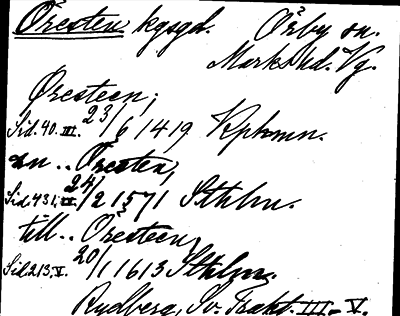 Öresten kgsgd. Örby sn.
Marks hd. Vg.
Øresteen;
Sid. 40. III. 23/6 1419 Kphmn.
nn .. Öresten,
Sid. 431. III. 24/2 1571 Sthlm.
till .. Öresteen,
Sid. 213. V. 20/1 1613 Sthlm.
Rydberg, Sv. Trakt. III - V.